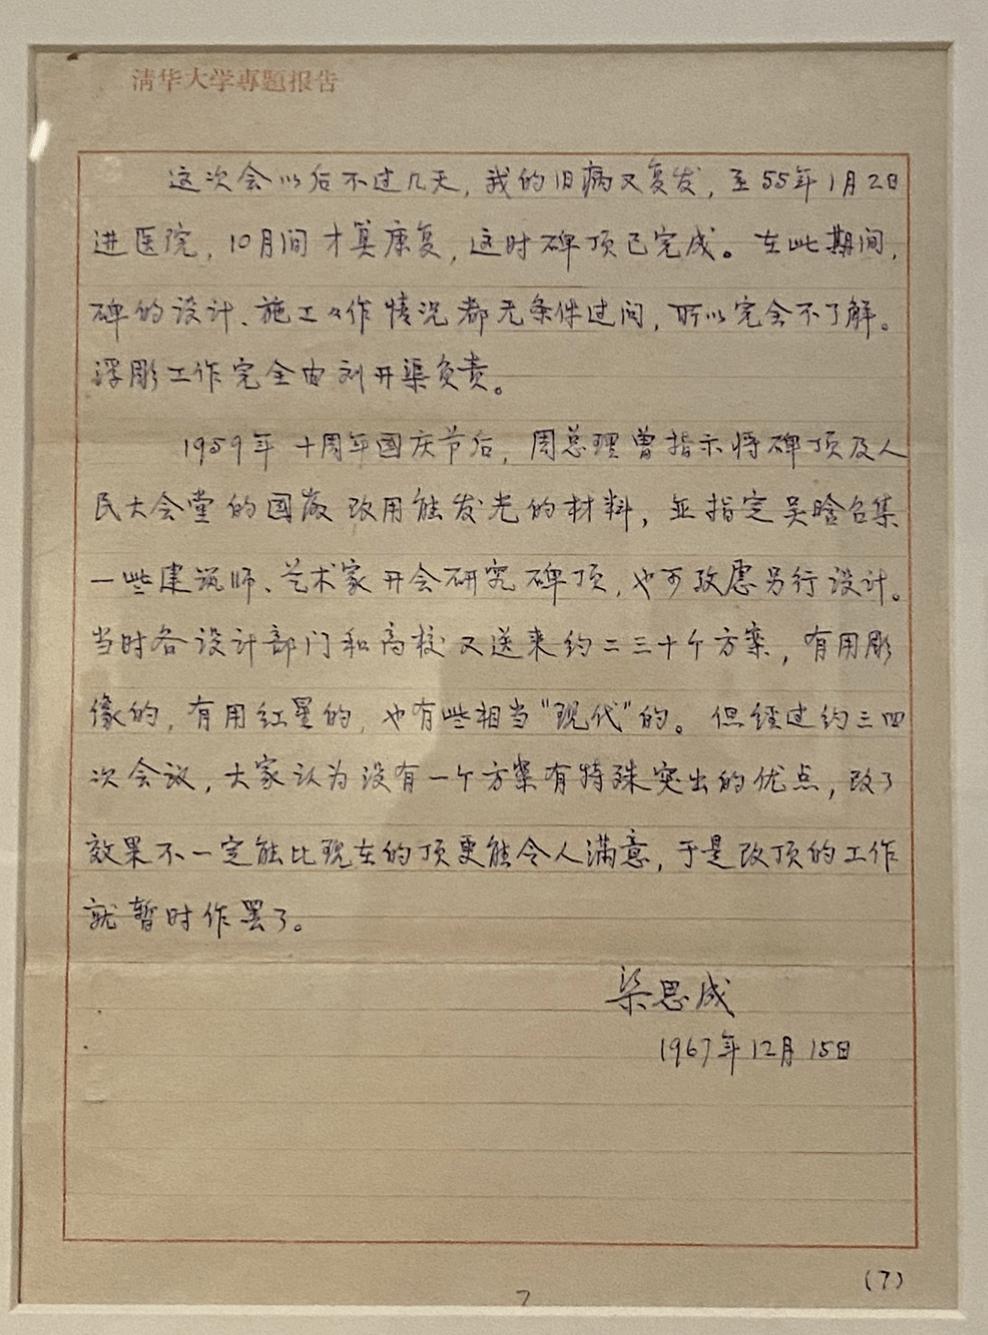 清华大学專題报告
这次会以后不过几天，我的旧病又复发，至55年1月2日
进医院，10月间才算康复，这时碑顶已完成。在此期间，
碑的设计、施工々作情况都无条件过问，所以完全不了解。
浮彫工作完全由刘开渠负责。
1959年十周年國庆节后，周总理曾指示将碑顶及人
民大会堂的国徽改用能发光的材料，並指定吴晗召集
一些建筑师、艺术家开会研究碑顶，也可攷虑另行设计。
当时各设计部门和高校又送来约二三十个方案，有用彫
像的，有用红星的，也有些相当“现代”的。但经过约三四
次会议，大家认为没有一个方案有特殊突出的优点，改了
效果不一定能比现在的顶更能令人满意，于是改顶的工作
就暂时作罢了。
梁思成
1967年12月15日
(7)
7